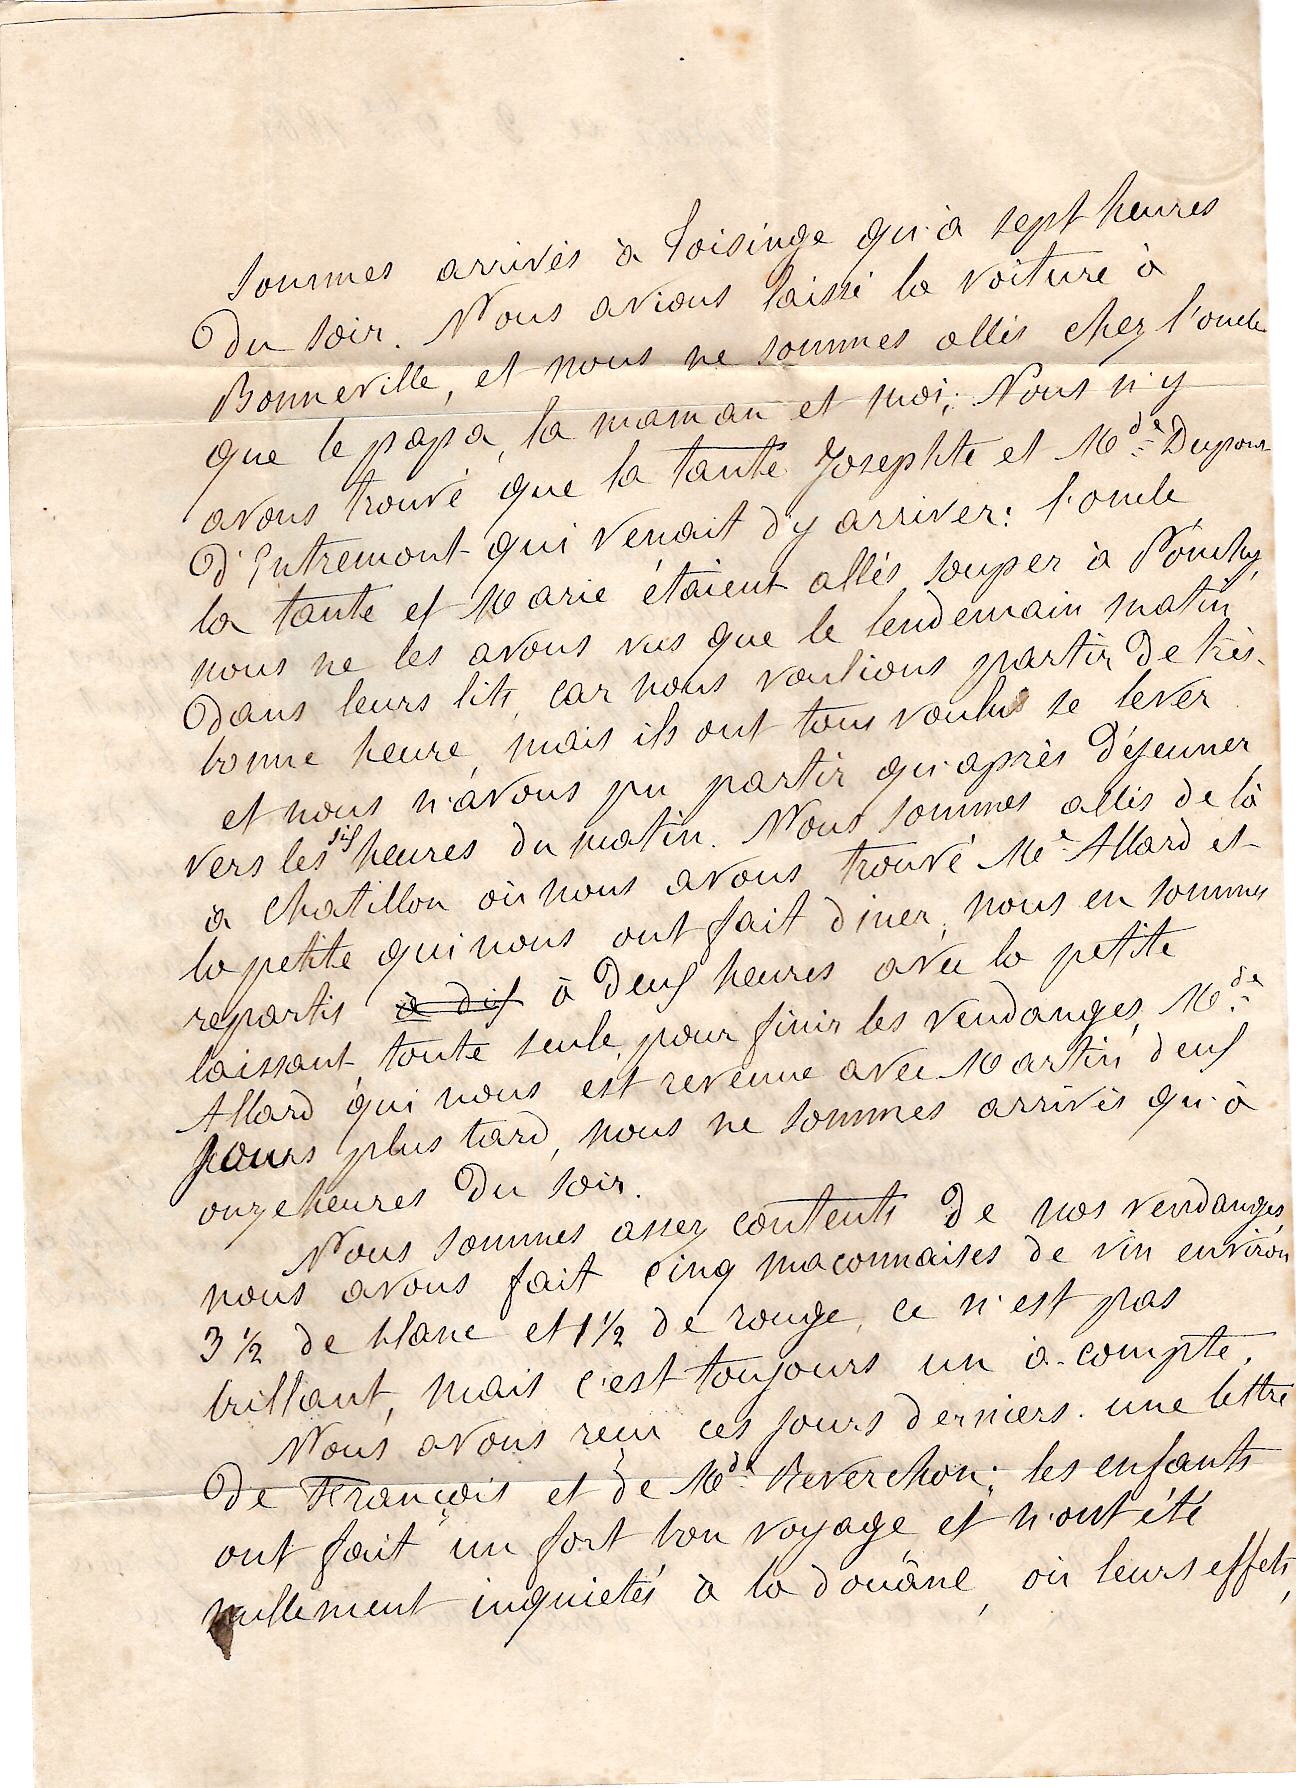 sommes arrivés à Toisinge qu'à sept heures
du soir. Nous avions laissé la voiture à
Bonneville, et nous ne sommes allés chez l'oncle
que le papa, la maman et moi; Nous n'y
avons trouvé que la tante Josephte et Mde Dupour
d'Entremont qui venait d'y arriver: l'oncle
la tante et Marie étaient allés souper à Pontchy,
nous ne les avons vus que le lendemain matin
dans leurs lits, car nous voulions partir de très-
bonne heure, mais ils ont tous voulu se lever
et nous n'avons pu partir qu'après déjeuner,
vers les six heures du matin. Nous sommes allés de là
à Chatillon où nous avons trouvé Me Allard et
la petite qui nous ont fait diner, nous en sommes
repartis à dix à deux heures avec la petite
laissant toute seule pour finir les vendanges, Mde
Allard qui nous est revenue avec Martin deux
jours plus tard, nous ne sommes arrivés qu'à
onze heures du soir.
Nous sommes assez contents de nos vendanges,
nous avons fait cinq maconnaises de vin environ
3 1/2 de blanc et 1 1/2 de rouge, ce n'est pas
brillant, mais c'est toujours un à-compte.
Nous avons reçu ces jours derniers une lettre
de François et de Mde Reverchon; les enfants
ont fait un fort bon voyage et n'ont été
nullement inquietés à la douâne, où leurs effets,